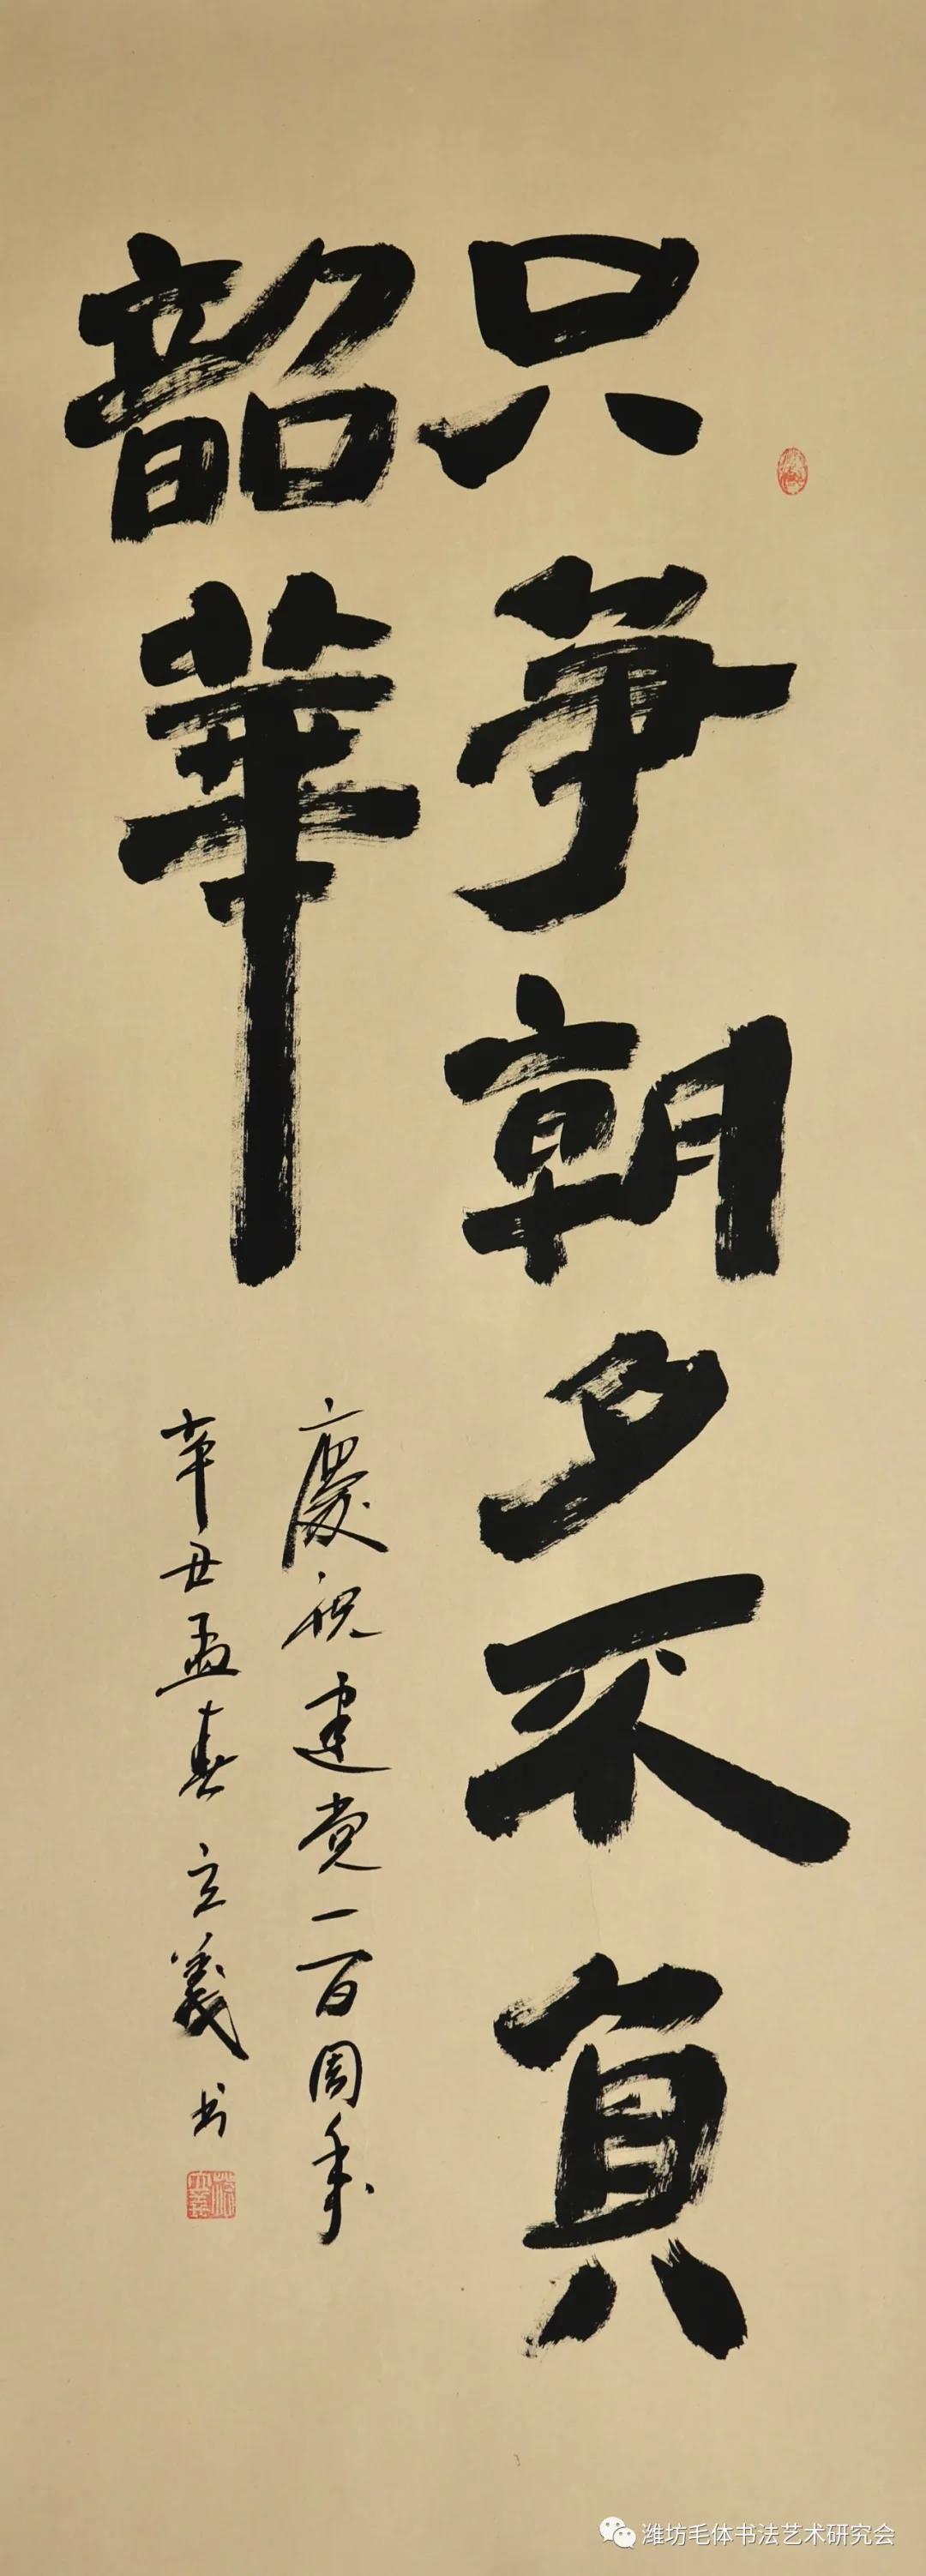 只争朝夕不負
韶華
慶祝建党一百周年
辛丑孟春立義书
潍坊毛体书法艺术研究会